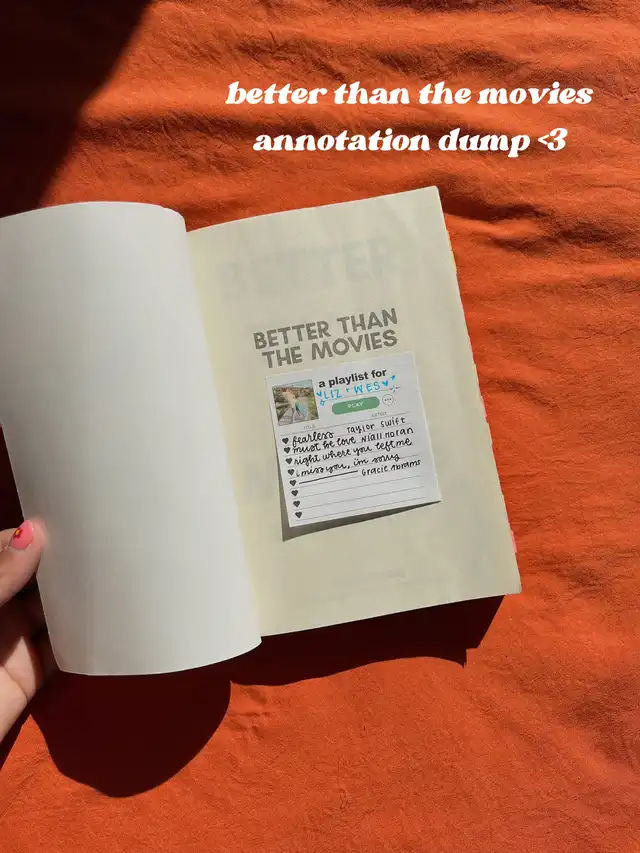 better than the movies
annotation dump <3
BETTER
BETTER THAN
THE MOVIES
a playlist for
LIZ + WES
PLAY
TITLE ARTIST
fearless Taylor Swift
must be love Niall Horan
right where you left me
i miss you, i'm sorry
Gracie Abrams